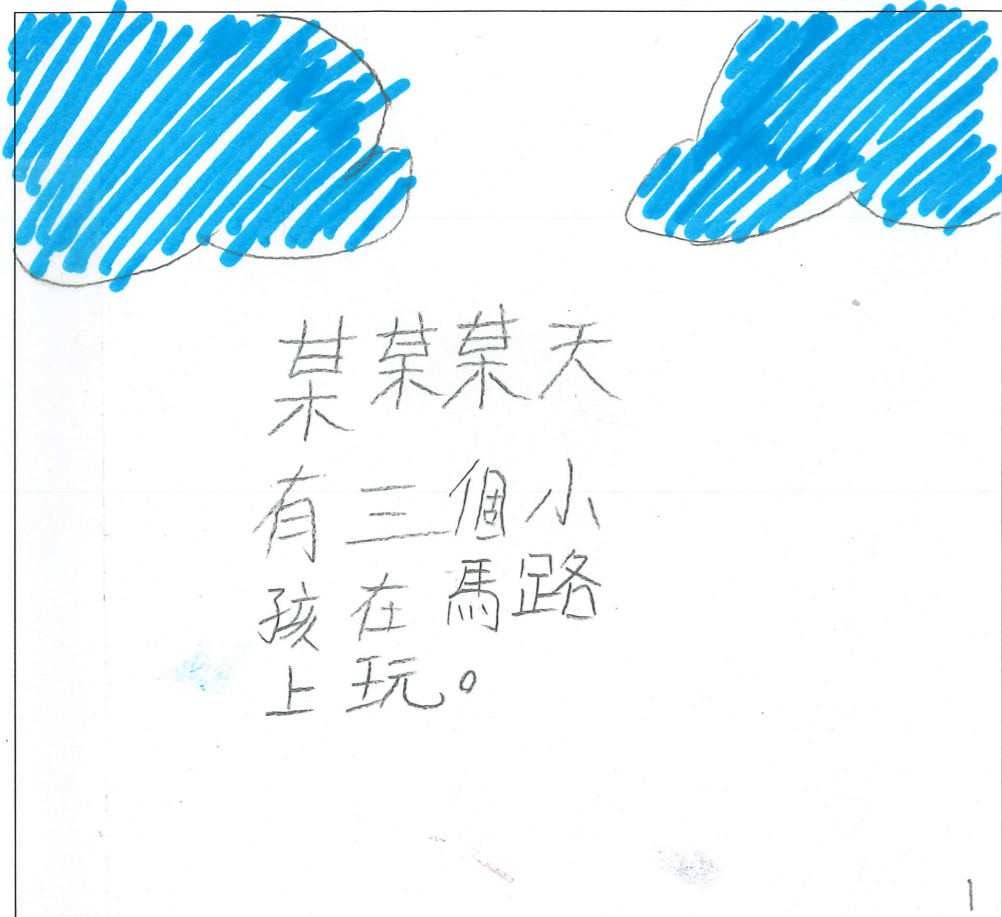 某某某天
有三個小
孩在馬路
上玩。
1